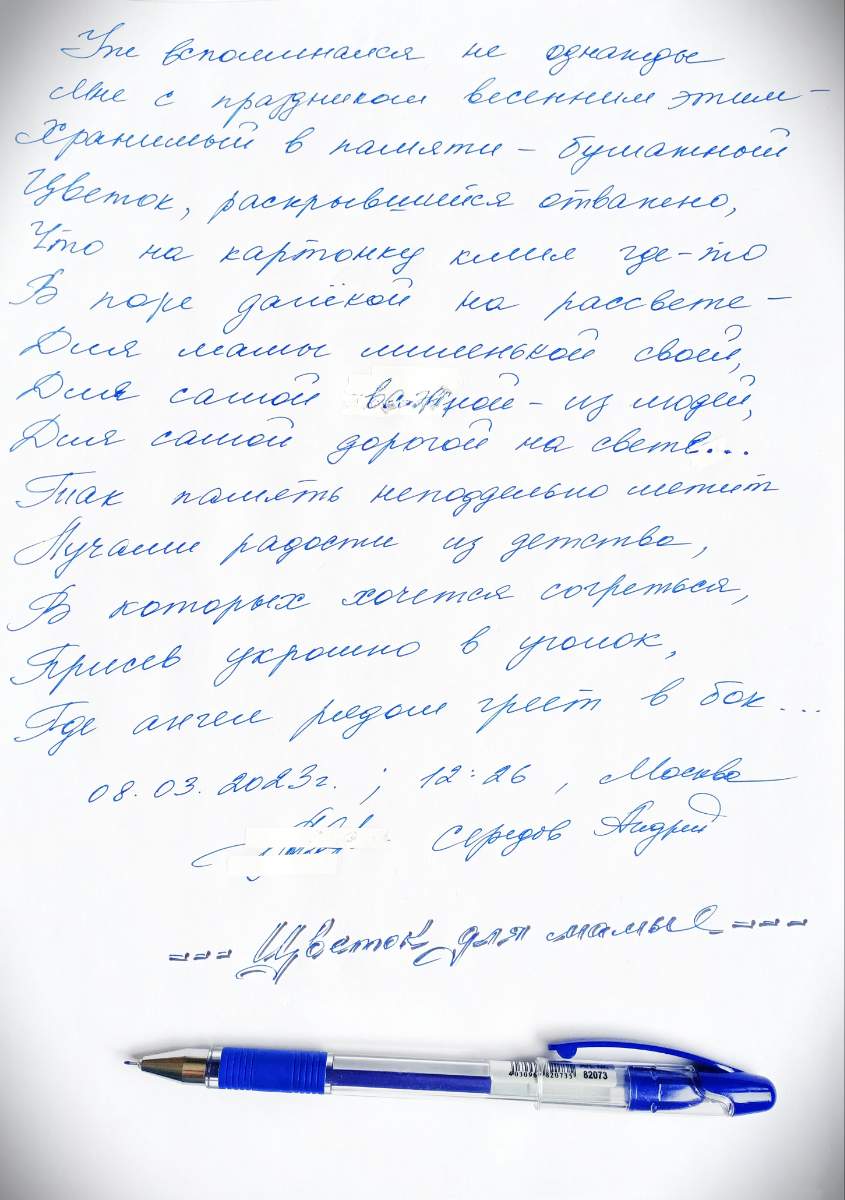 Уже вспоминался не однажды
Мне с праздником весенним этим –
Хранимый в памяти – бумажный
Цветок, раскрывшийся отважно,
Что на картонку клеил где-то
В поре далёкой на рассвете –
Для мамы миленькой своей,
Для самой важной – из людей,
Для самой дорогой на свете...
Так память неподдельно метит
Лучами радости из детства,
В которых хочется согреться,
Присев украшно в уголок,
Где ангел рядом греет в бок...
08.03.2023г. ; 12:26 , Москва
Середов Андрей
--- Цветок для мамы ---
403096 820735 82073